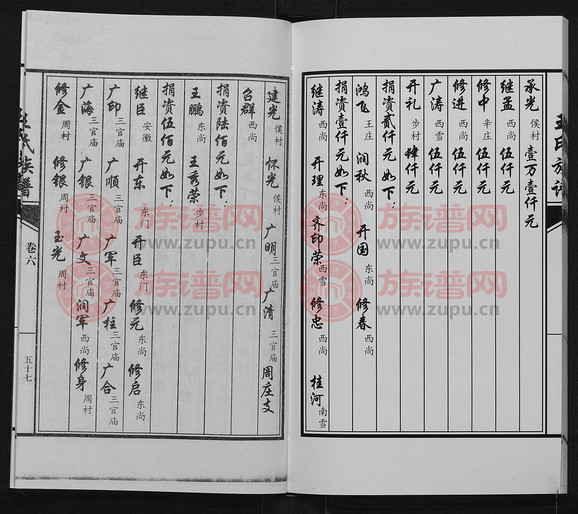 王氏族谱
承光 侯村 壹万壹仟元
继孟 西尚 伍仟元
修中 辛庄 伍仟元
修进 西尚 伍仟元
广涛 西雪 伍仟元
开礼 步村 肆仟元
捐资贰仟元如下：
鸿飞 王庄 润秋 开国 东尚 修春 西尚
捐资壹仟元如下：
继涛 西尚 开理 东尚 齐印荣 西雪 修忠 桂河 南雪
建光 侯村 怀光 侯村 广明 三官庙 广清 三官庙 周庄支
召群 西尚
捐资陆佰元如下：
王鹏 东尚 王秀荣 步村
捐资伍佰元如下：
继臣 安徽 开东 东门 开臣 东门 修元 东尚 修启 东尚
广印 三官庙 广顺 三官庙 广军 三官庙 广柱 三官庙 广合 三官庙
广海 三官庙 广银 三官庙 广文 三官庙 润军 西尚 修身 周村
修金 周村 修银 周村 玉光 周村
王氏族谱
卷六
五十七
族谱网
www.zupu.cn
族谱网
www.zupu.cn